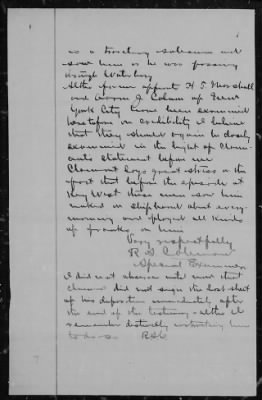 is a traveling salesman and
saw him as he was passing
through Waterbury
Altho former affiants H. T. Marshall
and Aaron J. Colnon of New
York City have been examined
heretofore on credibility I believe
that they should again be closely
examined in the light of Claim-
ants statement before me
Claimant lays great stress on the
fact that before the episode at
Key West these men saw him
naked on shipboard about every
morning and played all kinds
of pranks on him
Very respectfully
R. H.
Special Examiner
I did not observe until now that
claimant did not sign the last sheet
of his deposition immediately after
the end of the testimony - altho I
remember distinctly instructing him
to do so